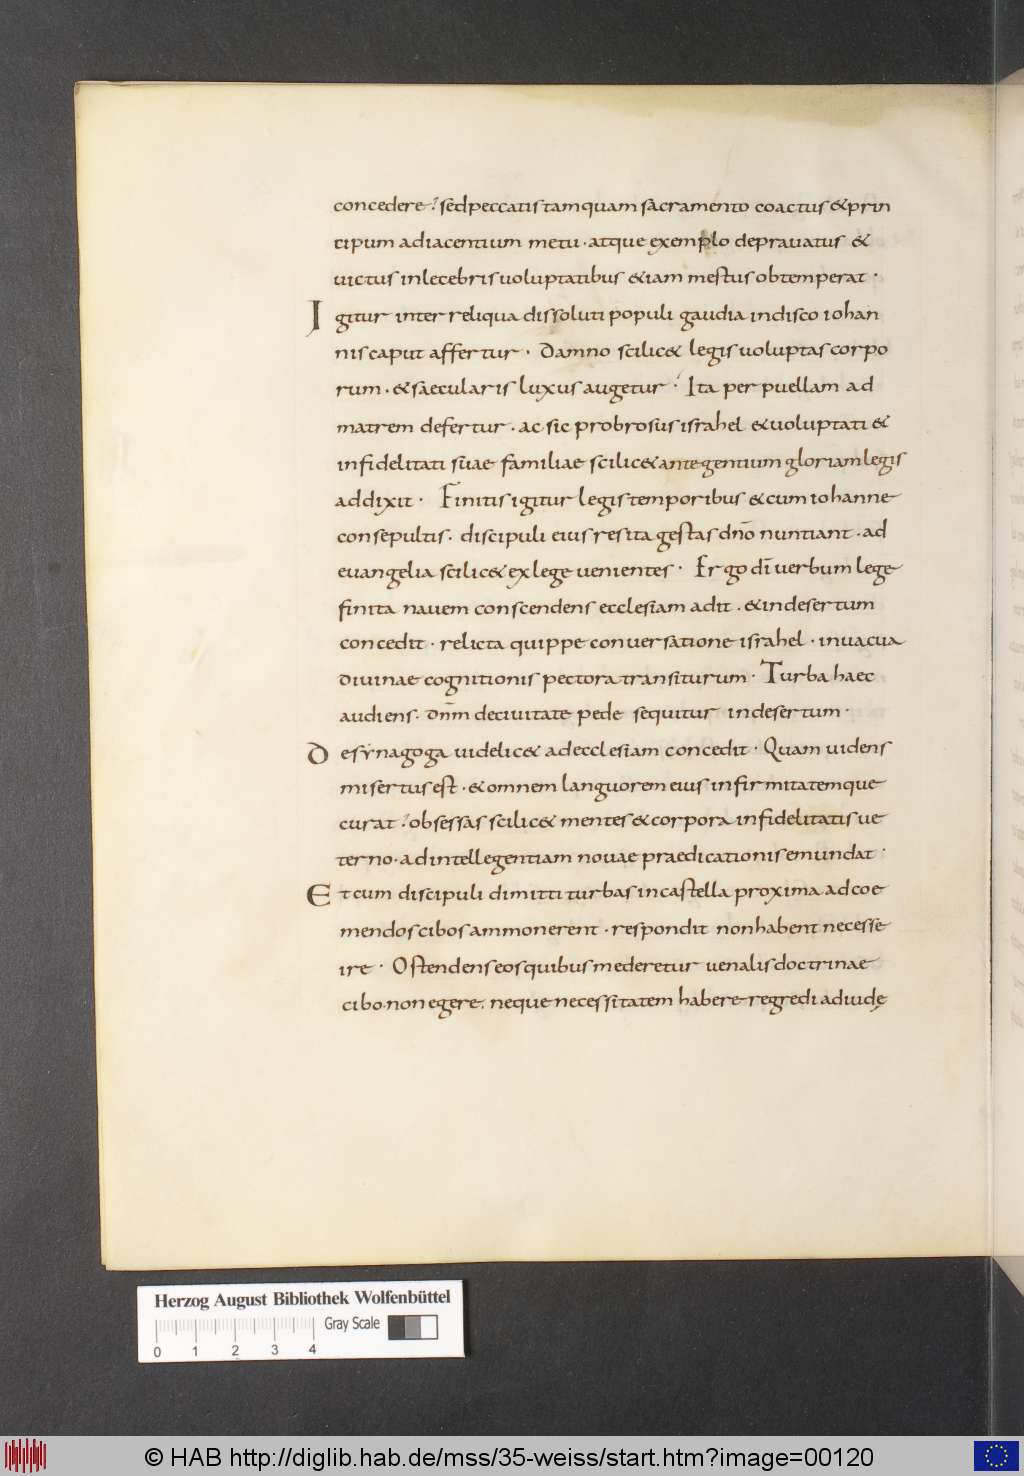 concedere. sed peccatis tamquam sacramento coactus & prin
cipum adiacentium metu · atque exemplo deprauatus &
uictus inlecebris uoluptatibus &iam mestus obtemperat ·
Igitur inter reliqua dissoluti populi gaudia in disco iohan
nis caput affertur · Damno scilic& legis uoluptas corpo
rum · & saecularis luxus augetur · Ita per puellam ad
matrem defertur · ac sic probrosus israhel & uoluptati &
infidelitati suae familiae scilic& ante gentium gloriam legis
addixit · Finitis igitur legis temporibus & cum iohanne
consepultis · discipuli eius res ita gestas dn̄o nuntiant · ad
euangelia scilic& ex lege uenientes · Ergo dī uerbum lege
finita nauem conscendens ecclesiam adit · & in desertum
concedit · relicta quippe conuersatione israhel · in uacua
diuinae cognitionis pectora transiturum · Turba haec
audiens · dn̄m de ciuitate pede sequitur in desertum ·
De synagoga uidelic& ad ecclesiam concedit · Quam uidens
misertus est · & omnem languorem eius infirmitatemque
curat. obsessas scilic& mentes & corpora infidelitatis ue
terno · ad intellegentiam nouae praedicationis emundat ·
Et cum discipuli dimitti turbas in castella proxima ad coe
mendos cibos ammonerent · respondit non habent necesse
ire · Ostendens eos quibus mederetur uenalis doctrinae
cibo · non egere. neque necessitatem habere regredi ad iudę
Herzog August Bibliothek Wolfenbüttel
Gray Scale
0 1 2 3 4
© HAB http://diglib.hab.de/mss/35-weiss/start.htm?image=00120